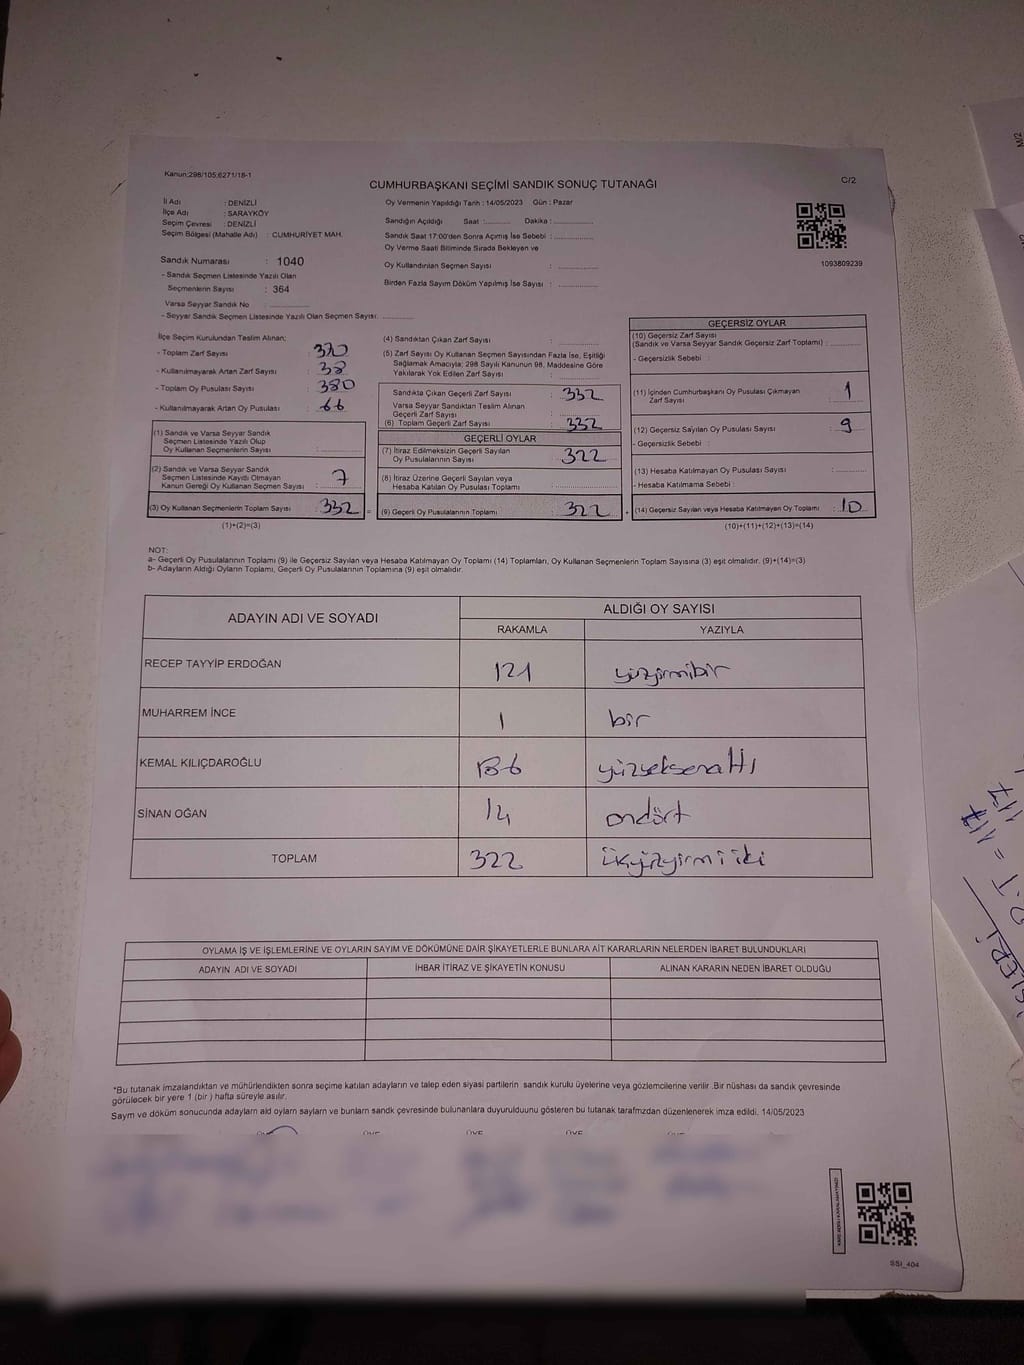 Kanun;298/105;6271/18-1
CUMHURBAŞKANI SEÇİMİ SANDIK SONUÇ TUTANAĞI
C/2
İl Adı : DENİZLİ
İlçe Adı : SARAYKÖY
Seçim Çevresi : DENİZLİ
Seçim Bölgesi (Mahalle Adı) : CUMHURİYET MAH.
Sandık Numarası : 1040
- Sandık Seçmen Listesinde Yazılı Olan
Seçmenlerin Sayısı : 364
Varsa Seyyar Sandık No :
- Seyyar Sandık Seçmen Listesinde Yazılı Olan Seçmen Sayısı:
Oy Vermenin Yapıldığı Tarih : 14/05/2023 Gün : Pazar
Sandığın Açıldığı Saat : Dakika :
Sandık Saat 17:00'den Sonra Açımış İse Sebebi :
Oy Verme Saati Bitiminde Sırada Bekleyen ve
Oy Kullandırılan Seçmen Sayısı :
Birden Fazla Sayım Döküm Yapılmış İse Sayısı :
1093809239
İlçe Seçim Kurulundan Teslim Alınan;
- Toplam Zarf Sayısı : 370
- Kullanılmayarak Artan Zarf Sayısı : 38
- Toplam Oy Pusulası Sayısı : 380
- Kullanılmayarak Artan Oy Pusulası : 66
(1) Sandık ve Varsa Seyyar Sandık
Seçmen Listesinde Yazılı Olup
Oy Kullanan Seçmenlerin Sayısı :
(2) Sandık ve Varsa Seyyar Sandık
Seçmen Listesinde Kayıtlı Olmayan
Kanun Gereği Oy Kullanan Seçmen Sayısı : 7
(3) Oy Kullanan Seçmenlerin Toplam Sayısı : 332 =
(1)+(2)=(3)
(4) Sandıktan Çıkan Zarf Sayısı :
(5) Zarf Sayısı Oy Kullanan Seçmen Sayısından Fazla İse, Eşitliği
Sağlamak Amacıyla; 298 Sayılı Kanunun 98, Maddesine Göre
Yakılarak Yok Edilen Zarf Sayısı :
Sandıkta Çıkan Geçerli Zarf Sayısı : 332
Varsa Seyyar Sandıktan Teslim Alınan
Geçerli Zarf Sayısı :
(6) Toplam Geçerli Zarf Sayısı : 332
GEÇERLİ OYLAR
(7) İtiraz Edilmeksizin Geçerli Sayılan
Oy Pusulalarının Sayısı : 322
(8) İtiraz Üzerine Geçerli Sayılan veya
Hesaba Katılan Oy Pusulası Toplamı :
(9) Geçerli Oy Pusulalarının Toplamı : 322 +
GEÇERSİZ OYLAR
(10) Geçersiz Zarf Sayısı
(Sandık ve Varsa Seyyar Sandık Geçersiz Zarf Toplamı) :
- Geçersizlik Sebebi :
(11) İçinden Cumhurbaşkanı Oy Pusulası Çıkmayan
Zarf Sayısı : 1
(12) Geçersiz Sayılan Oy Pusulası Sayısı : 9
- Geçersizlik Sebebi :
(13) Hesaba Katılmayan Oy Pusulası Sayısı :
- Hesaba Katılmama Sebebi :
(14) Geçersiz Sayılan veya Hesaba Katılmayan Oy Toplamı : 10
(10)+(11)+(12)+(13)=(14)
NOT:
a- Geçerli Oy Pusulalarının Toplamı (9) ile Geçersiz Sayılan veya Hesaba Katılmayan Oy Toplamı (14) Toplamları, Oy Kullanan Seçmenlerin Toplam Sayısına (3) eşit olmalıdır. (9)+(14)=(3)
b- Adayların Aldığı Oyların Toplamı, Geçerli Oy Pusulalarının Toplamına (9) eşit olmalıdır.
ADAYIN ADI VE SOYADI
ALDIĞI OY SAYISI
RAKAMLA YAZIYLA
RECEP TAYYİP ERDOĞAN 121 yüzyirmibir
MUHARREM İNCE 1 bir
KEMAL KILIÇDAROĞLU 186 yüzseksenaltı
SİNAN OĞAN 14 ondört
TOPLAM 322 üçyüzyirmiiki
OYLAMA İŞ VE İŞLEMLERİNE VE OYLARIN SAYIM VE DÖKÜMÜNE DAİR ŞİKAYETLERLE BUNLARA AİT KARARLARIN NELERDEN İBARET BULUNDUKLARI
ADAYIN ADI VE SOYADI İHBAR İTİRAZ VE ŞİKAYETİN KONUSU ALINAN KARARIN NEDEN İBARET OLDUĞU
*Bu tutanak imzalandıktan ve mühürlendikten sonra seçime katılan adayların ve talep eden siyasi partilerin sandık kurulu üyelerine veya gözlemcilerine verilir .Bir nüshası da sandık çevresinde
görülecek bir yere 1 (bir ) hafta süreyle asılır.
Sayım ve döküm sonucunda adayların ald oyların sayların ve bunların sandk çevresinde bulunanlara duyurulduunu gösteren bu tutanak tarafmzdan düzenlenerek imza edildi. 14/05/2023
SSI_404